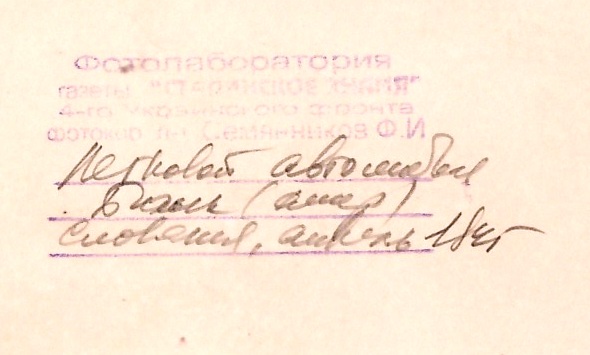 Фотолаборатория
газеты "СТАЛИНСКОЕ ЗНАМЯ"
4-го Украинского фронта
фотокор Семянников Ф.И
Легковой автомобиль
(амер)
Словакия, апрель 1945